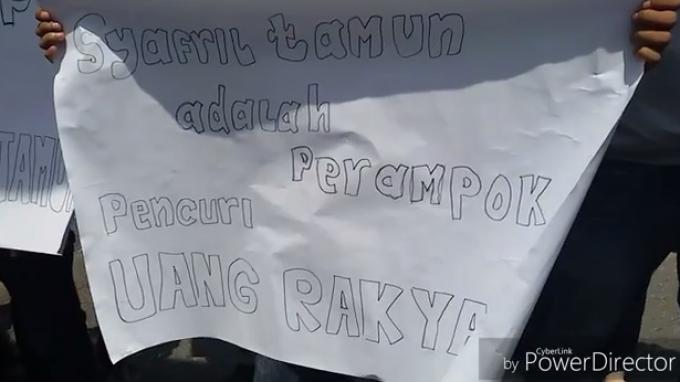 Syafril tamun
adalah
Perampok
Pencuri
UANG RAKYA
TAMU
P
CyberLink
by PowerDirector